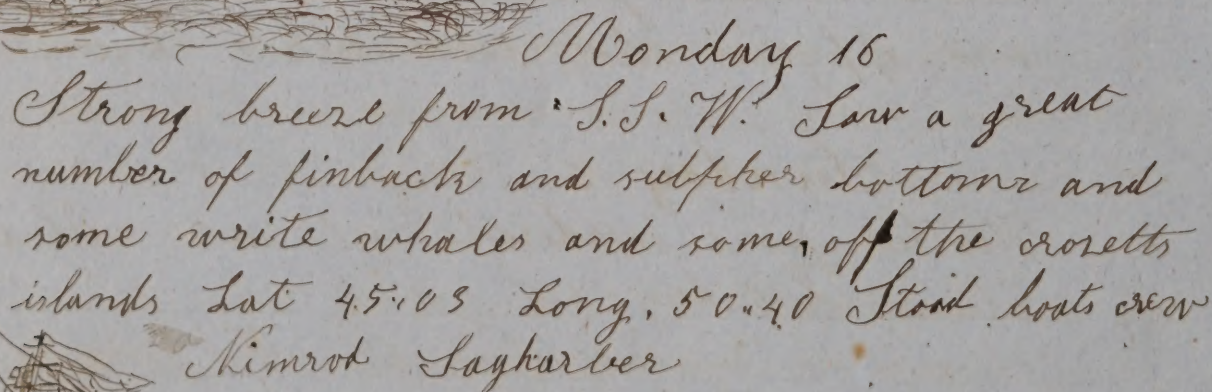 Monday 16
Strong breeze from S.S.W. Saw a great
number of finback and sulpher bottoms and
some write whales and some, off the crozetts
islands Lat 45..03 Long. 50..40 Stood boats crew
Nimrod Sagharber